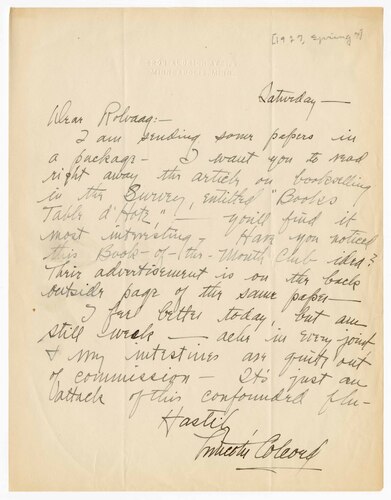 [1927, Spring?]
Saturday—
Dear Rolvaag:—
I am sending some papers in
a package— I want you to read
right away the article on bookselling
in the Survey, entitled "Books
Table d'Hote" — you'll find it
most interesting. Have you noticed
this Book-of-the-Month Club idea?
Their advertisement is on the back
outside page of the same paper—
I feel better today, but am
still weak — ache in every joint
& my intestines are quite out
of commission— It's just an
attack of this confounded flu—
Hastily
Lincoln Colcord